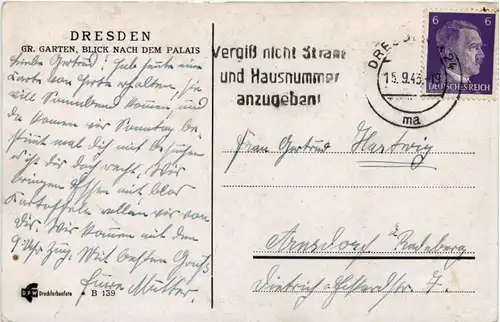 DRESDEN
GR. GARTEN, BLICK NACH DEM PALAIS
Liebe Gertrud! Hab heute eine
Karte von erhalten, sie
will Sonnabend kommen, und
da kommen wir Sonntag be-
stimmt mal dich mit besuchen
wist dir doch recht. Wir
bringen Essen mit blos
Kartoffeln wollen wir von
Dir. Wir kommen mit den
9 Uhr Zug. Mit besten Gruß
Eure Mutter.
Druckfarbenfoto * B 139
Vergiß nicht Straße
und Hausnummer
anzugeben!
DRESDEN
15.9.43.-19
ma
6 6
DEUTSCHES REICH
Frau Gertrud Hartwig
Arnsdorf b Radeberg
Dietrich-Eckardtstr. 7.